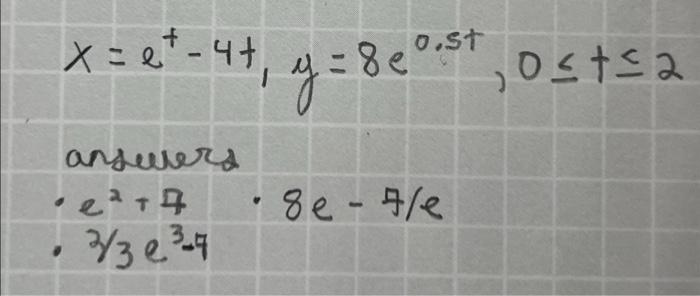 x = e^t - 4t, y = 8e^0.5t, 0 ≤ t ≤ 2
answers
• e² + 7 • 8e - 7/e
• 2/3 e³-7